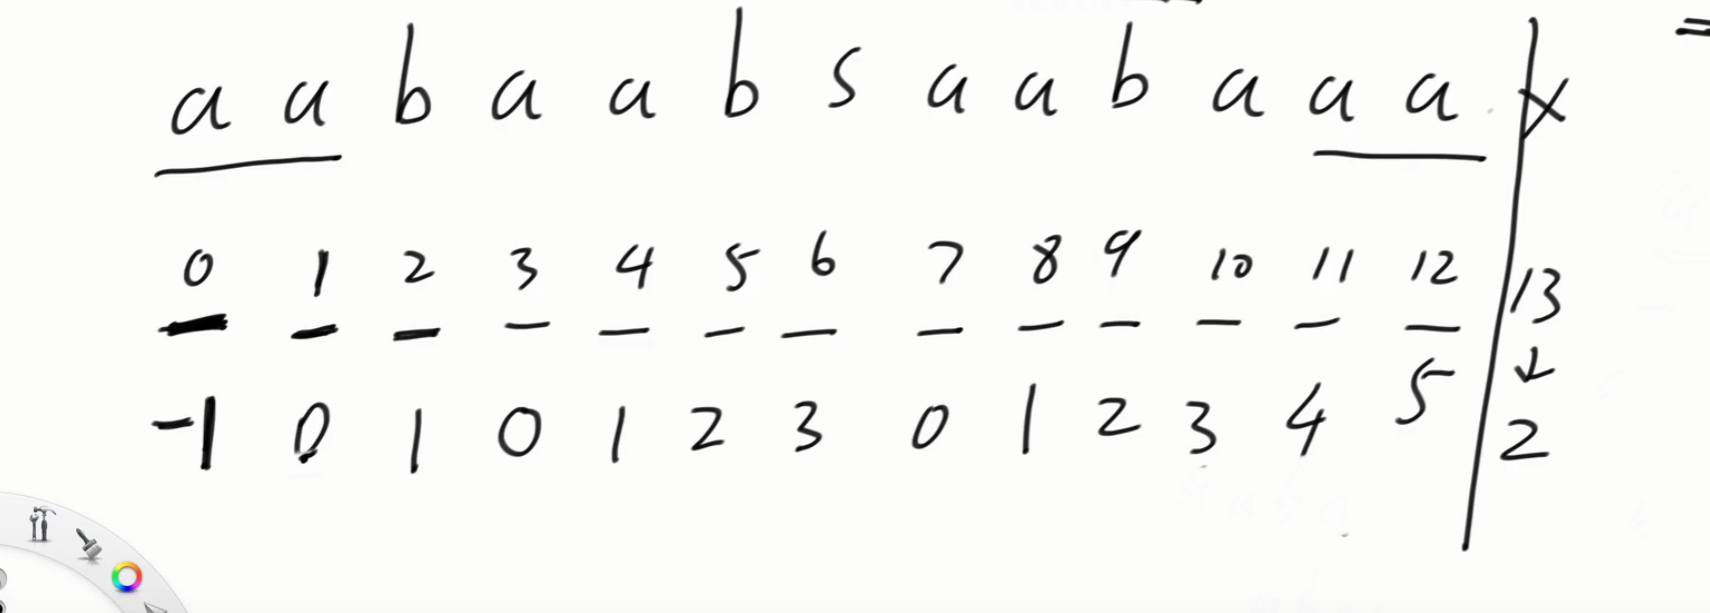 a a b a a b s a a b a a a x =
0 1 2 3 4 5 6 7 8 9 10 11 12 13
-1 0 1 0 1 2 3 0 1 2 3 4 5 2